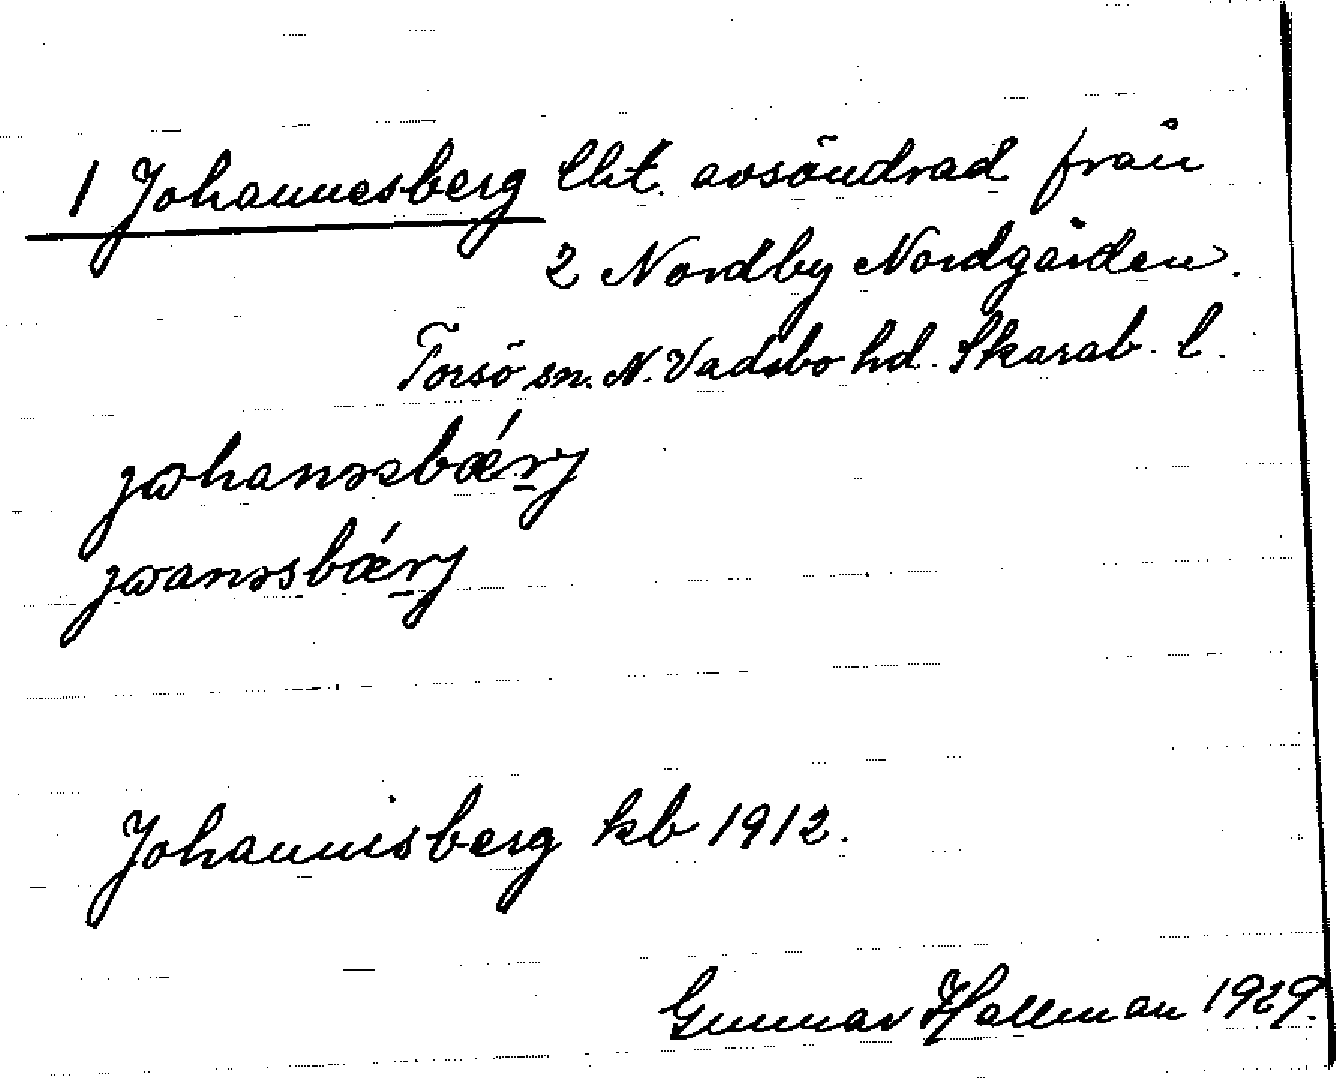 1 Johannesberg lht. avsöndrad från
2 Nordby Nordgården.
Torsö sn. N. Vadsbo hd. Skarab. l.
jɷhanəsbǽrj
jɷanəsbǽrj
Johannisberg kb 1912.
Gunnar Hallman 1929.